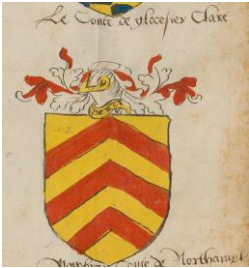 Le Conte de glocester Clare
Conte de Northampt